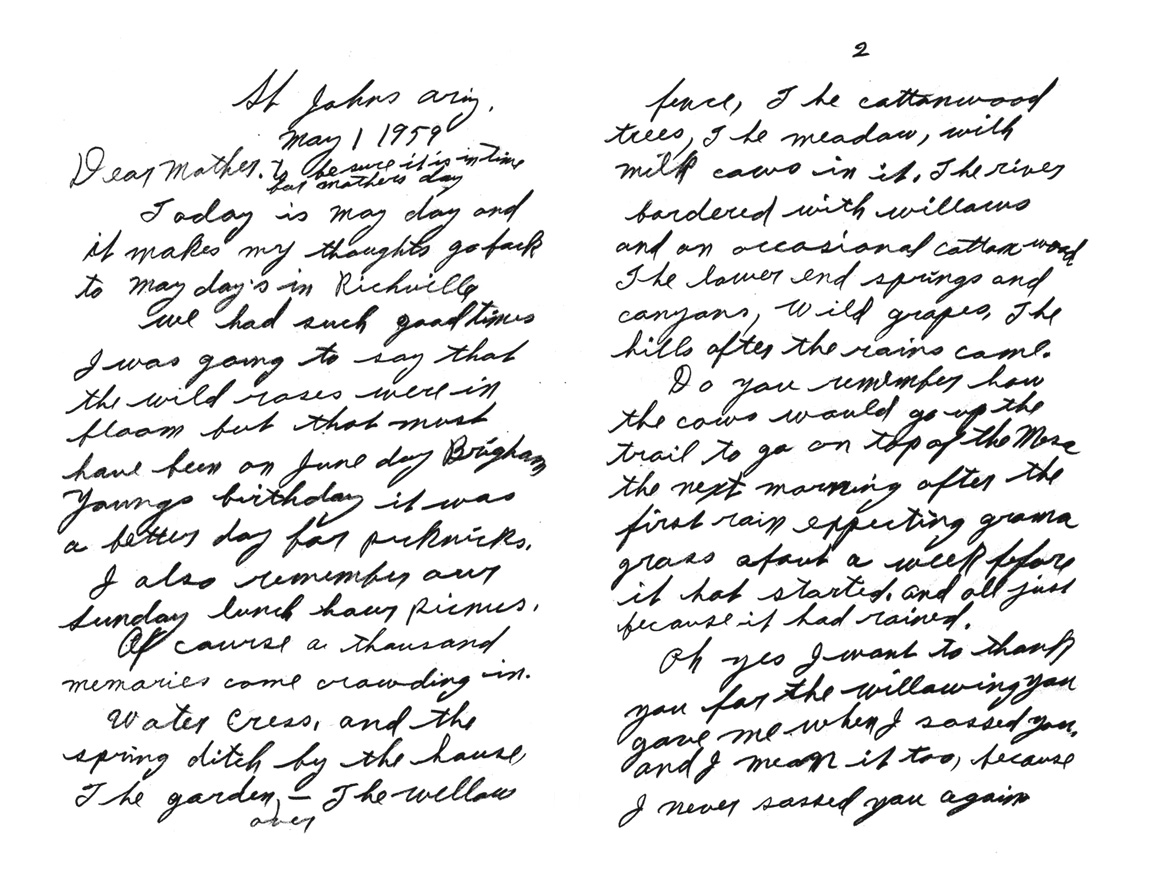 St Johns Ariz.
May 1 1959
Dear Mother. to be sure it is in time
for mothers day
Today is May day and
it makes my thoughts go back
to May day's in Richville
We had such good times
I was going to say that
the wild roses were in
bloom but that must
have been on June day Brigham
Youngs birthday it was
a better day for picknicks.
I also remember our
Sunday lunch hour picnics.
Of course a thousand
memories come crowding in.
Water Cress, and the
spring ditch by the house
The garden, — The willow
over
2
fence, The cottonwood
trees, The meadow, with
milk cows in it. The river
bordered with willows
and an occasional cottonwood
The lower end springs and
canyons, Wild grapes, The
hills after the rains came.
Do you remember how
the cows would go up the
trail to go on top of the Mesa
the next morning after the
first rain expecting grama
grass about a week before
it hat started. and all just
because it had rained.
Oh yes I want to thank
you for the willowing you
gave me when I sassed you.
and I mean it too, because
I never sassed you again